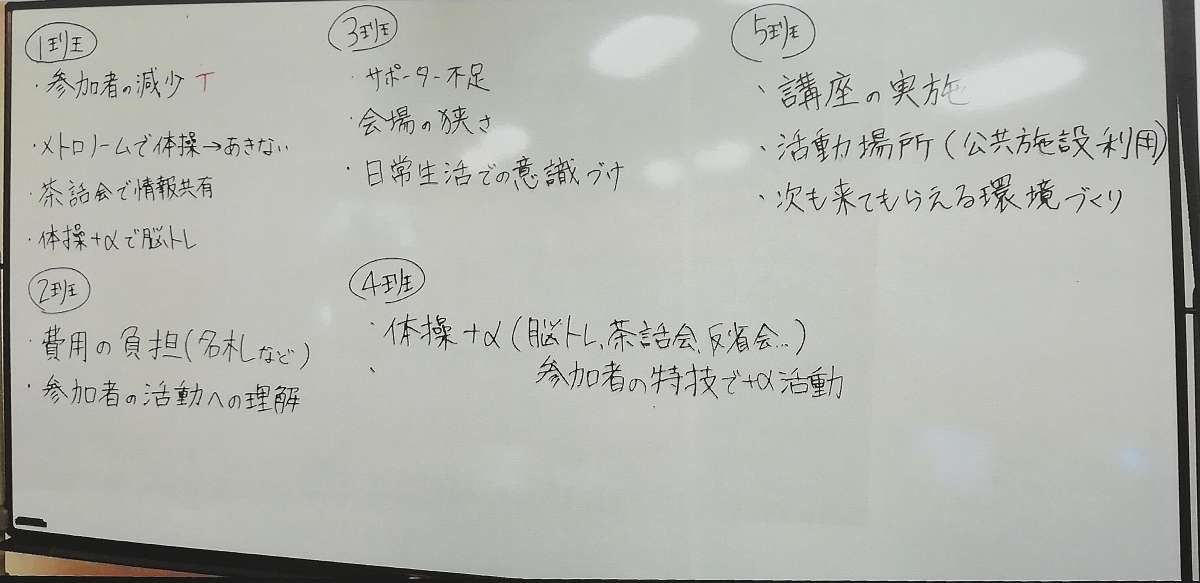 1班
・参加者の減少 T
・メトロノームで体操→あきない
・茶話会で情報共有
・体操+αで脳トレ
2班
・費用の負担(名札など)
・参加者の活動への理解
3班
・サポーター不足
・会場の狭さ
・日常生活での意識づけ
4班
・体操+α(脳トレ、茶話会、反省会…)
・
参加者の特技で+α活動
5班
・講座の実施
・活動場所(公共施設利用)
・次も来てもらえる環境づくり